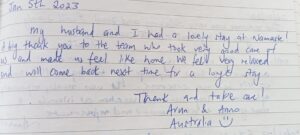 Jan 5th 2023
my husband and I had a lovely stay at Namaste!
thank you to the team who took very good care of
us and made us feel like home. We felt very relaxed
and will come back next time for a longer stay
Thank and take care!
Arun & Anna
Australia ☺